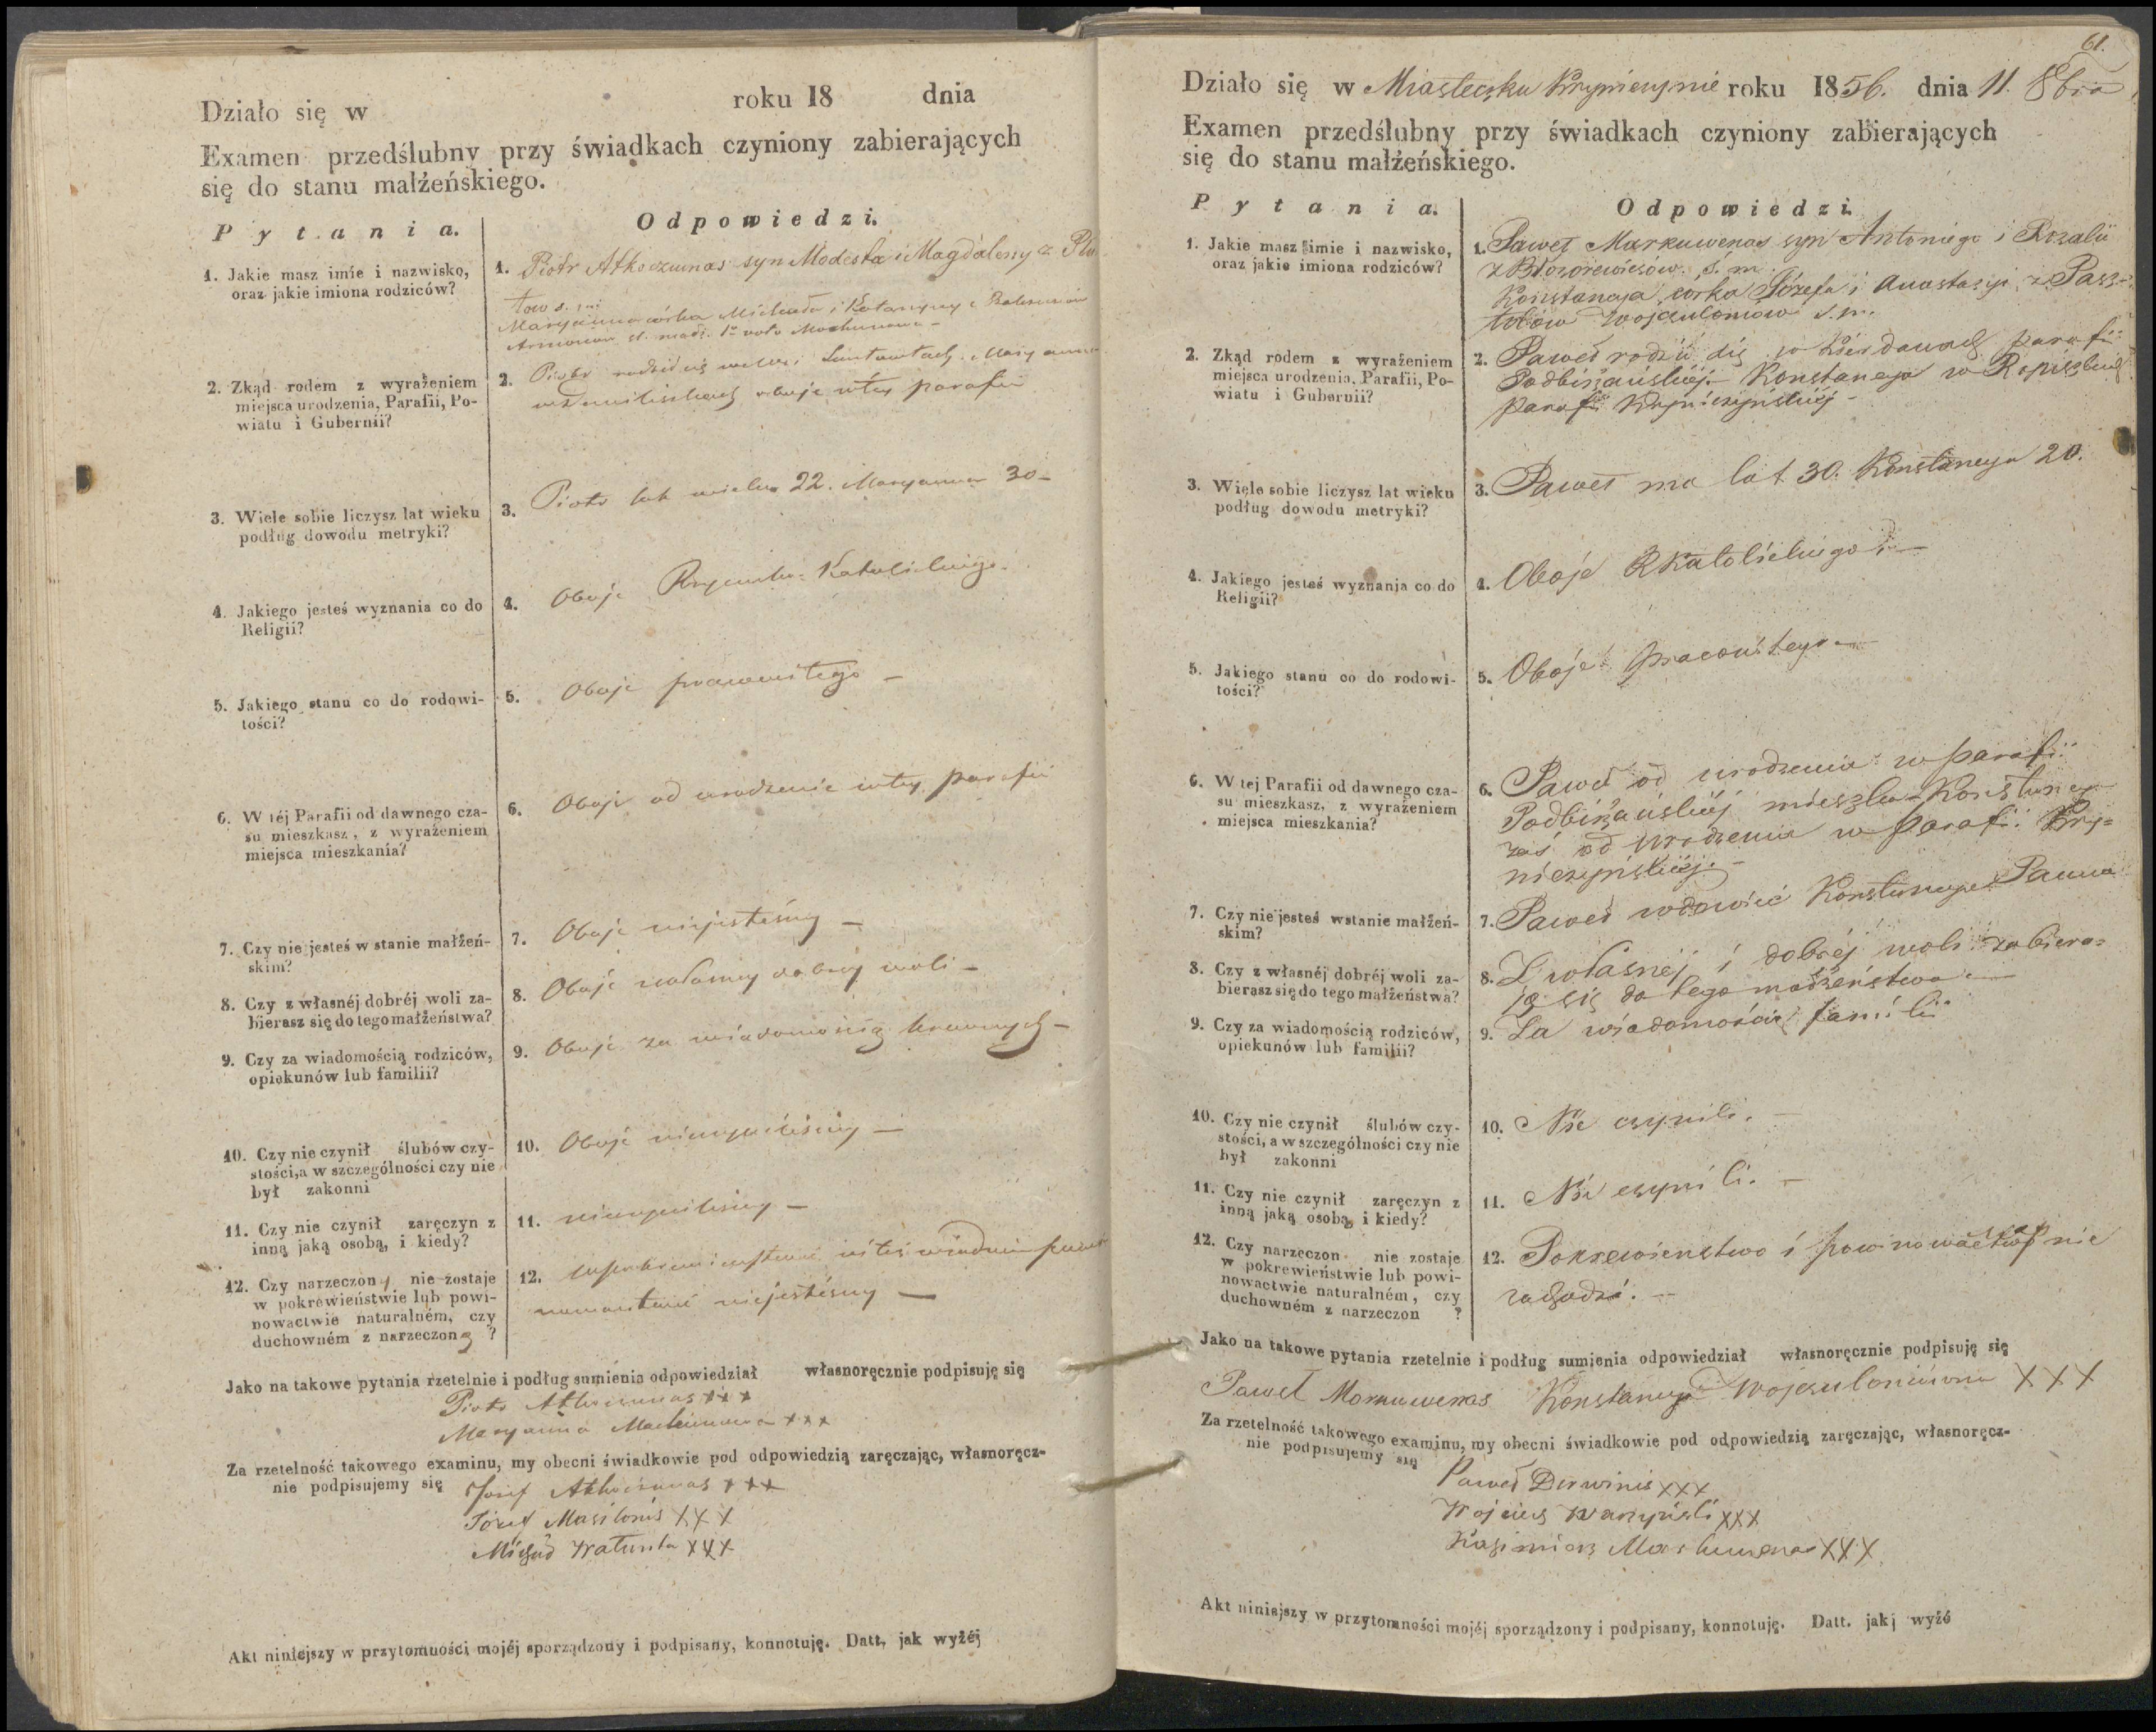 Działo się w roku 18 dnia
Examen przedślubny przy świadkach czyniony zabierających
się do stanu małżeńskiego.
Pytania.
Odpowiedzi.
1. Jakie masz imie i nazwisko,
oraz jakie imiona rodziców?
1. Piotr Atkoczunas syn Modesta i Magdaleny z
Maryanna córka Michała i Katarzyny z
2. Zkąd rodem z wyrażeniem
miejsca urodzenia, Parafii, Po-
wiatu i Gubernii?
2. Piotr rodził się we wsi Maryanna
oboje w tey parafii
3. Wiele sobie liczysz lat wieku
podług dowodu metryki?
3. Piotr lat wieku 22. Maryanna 30 –
4. Jakiego jesteś wyznania co do
Religii?
4. Oboje Rzymsko-Katolickiego.
5. Jakiego stanu co do rodowi-
tości?
5. Oboje pracowitego –
6. W téj Parafii od dawnego cza-
su mieszkasz, z wyrażeniem
miejsca mieszkania?
6. Oboje od urodzenia w tey parafii
7. Czy nie jesteś w stanie małżeń-
skim?
7. Oboje niejesteśmy –
8. Czy z własnéj dobréj woli za-
bierasz się do tego małżeństwa?
8. Oboje z własney dobrey woli –
9. Czy za wiadomością rodziców,
opiekunów lub familii?
9. Oboje za wiadomością krewnych –
10. Czy nie czynił ślubów czy-
stości, a w szczególności czy nie
był zakonni
10. Oboje nieczyniliśmy –
11. Czy nie czynił zaręczyn z
inną jaką osobą, i kiedy?
11. nieczyniliśmy –
12. Czy narzeczony nie zostaje
w pokrewieństwie lub powi-
nowactwie naturalném, czy
duchowném z narzeczoną ?
12. niejesteśmy –
Jako na takowe pytania rzetelnie i podług sumienia odpowiedział własnoręcznie podpisuję się
Piotr Atkoczunas xxx
Maryanna xxx
Za rzetelność takowego examinu, my obecni świadkowie pod odpowiedzią zaręczając, własnoręcz-
nie podpisujemy się Józef Atkoczunas xxx
Józef Masilonis XXX
Michał Watunka XXX
Akt niniejszy w przytomności mojéj sporządzony i podpisany, konnotuję. Datt. jak wyżéj
61.
Działo się w Miasteczku Kryniczynie roku 1856. dnia 11. 8bra
Examen przedślubny przy świadkach czyniony zabierających
się do stanu małżeńskiego.
Pytania.
Odpowiedzi.
1. Jakie masz imie i nazwisko,
oraz jakie imiona rodziców?
1. Paweł Markuwenas syn Antoniego i Rozalii
ś. m.
Konstancya córka Józefa i Anastazyi z Pasz-
Woyczuloniow ś. m.
2. Zkąd rodem z wyrażeniem
miejsca urodzenia, Parafii, Po-
wiatu i Gubernii?
2. Paweł rodził się w parafii
Podbirżańskiéj. Konstancya w
Parafii Kryniczyńskiéj –
3. Wiele sobie liczysz lat wieku
podług dowodu metryki?
3. Paweł ma lat 30. Konstancya 20.
4. Jakiego jesteś wyznania co do
Religii?
4. Oboje RKatolickiego. –
5. Jakiego stanu co do rodowi-
tości?
5. Oboje pracowitego –
6. W tej Parafii od dawnego cza-
su mieszkasz, z wyrażeniem
miejsca mieszkania?
6. Paweł od urodzenia w parafii
Podbirżańskiéj mieszka – Konstancya
zaś od urodzenia w parafii Kry-
niczyńskiéj. –
7. Czy nie jesteś wstanie małżeń-
skim?
7. Paweł wdowiec Konstancya Panna
8. Czy z własnéj dobréj woli za-
bierasz się do tego małżeństwa?
8. Z własnéj i dobréj woli zabiera-
ją się do tego małżeństwa –
9. Czy za wiadomością rodziców,
opiekunów lub familii?
9. Za wiadomością familii
10. Czy nie czynił ślubów czy-
stości, a w szczególności czy nie
był zakonni
10. Nie czynili. –
11. Czy nie czynił zaręczyn z
inną jaką osobą, i kiedy?
11. Nie czynili. –
12. Czy narzeczon nie zostaje
w pokrewieństwie lub powi-
nowactwie naturalném, czy
duchowném z narzeczon ?
12. Pokrewieństwo i powinowactwo nie
zachodzi. –
Jako na takowe pytania rzetelnie i podług sumienia odpowiedział własnoręcznie podpisuję się
Paweł Markuwenas Konstancya Woyczuloniówna XXX
Za rzetelność takowego examinu, my obecni świadkowie pod odpowiedzią zaręczając, własnoręcz-
nie podpisujemy się
Paweł Derwinis xxx
Wojciech Warzyński xxx
Kazimierz Markuwenas XXX
Akt niniejszy w przytomności mojéj sporządzony i podpisany, konnotuję. Datt. jakj wyżé